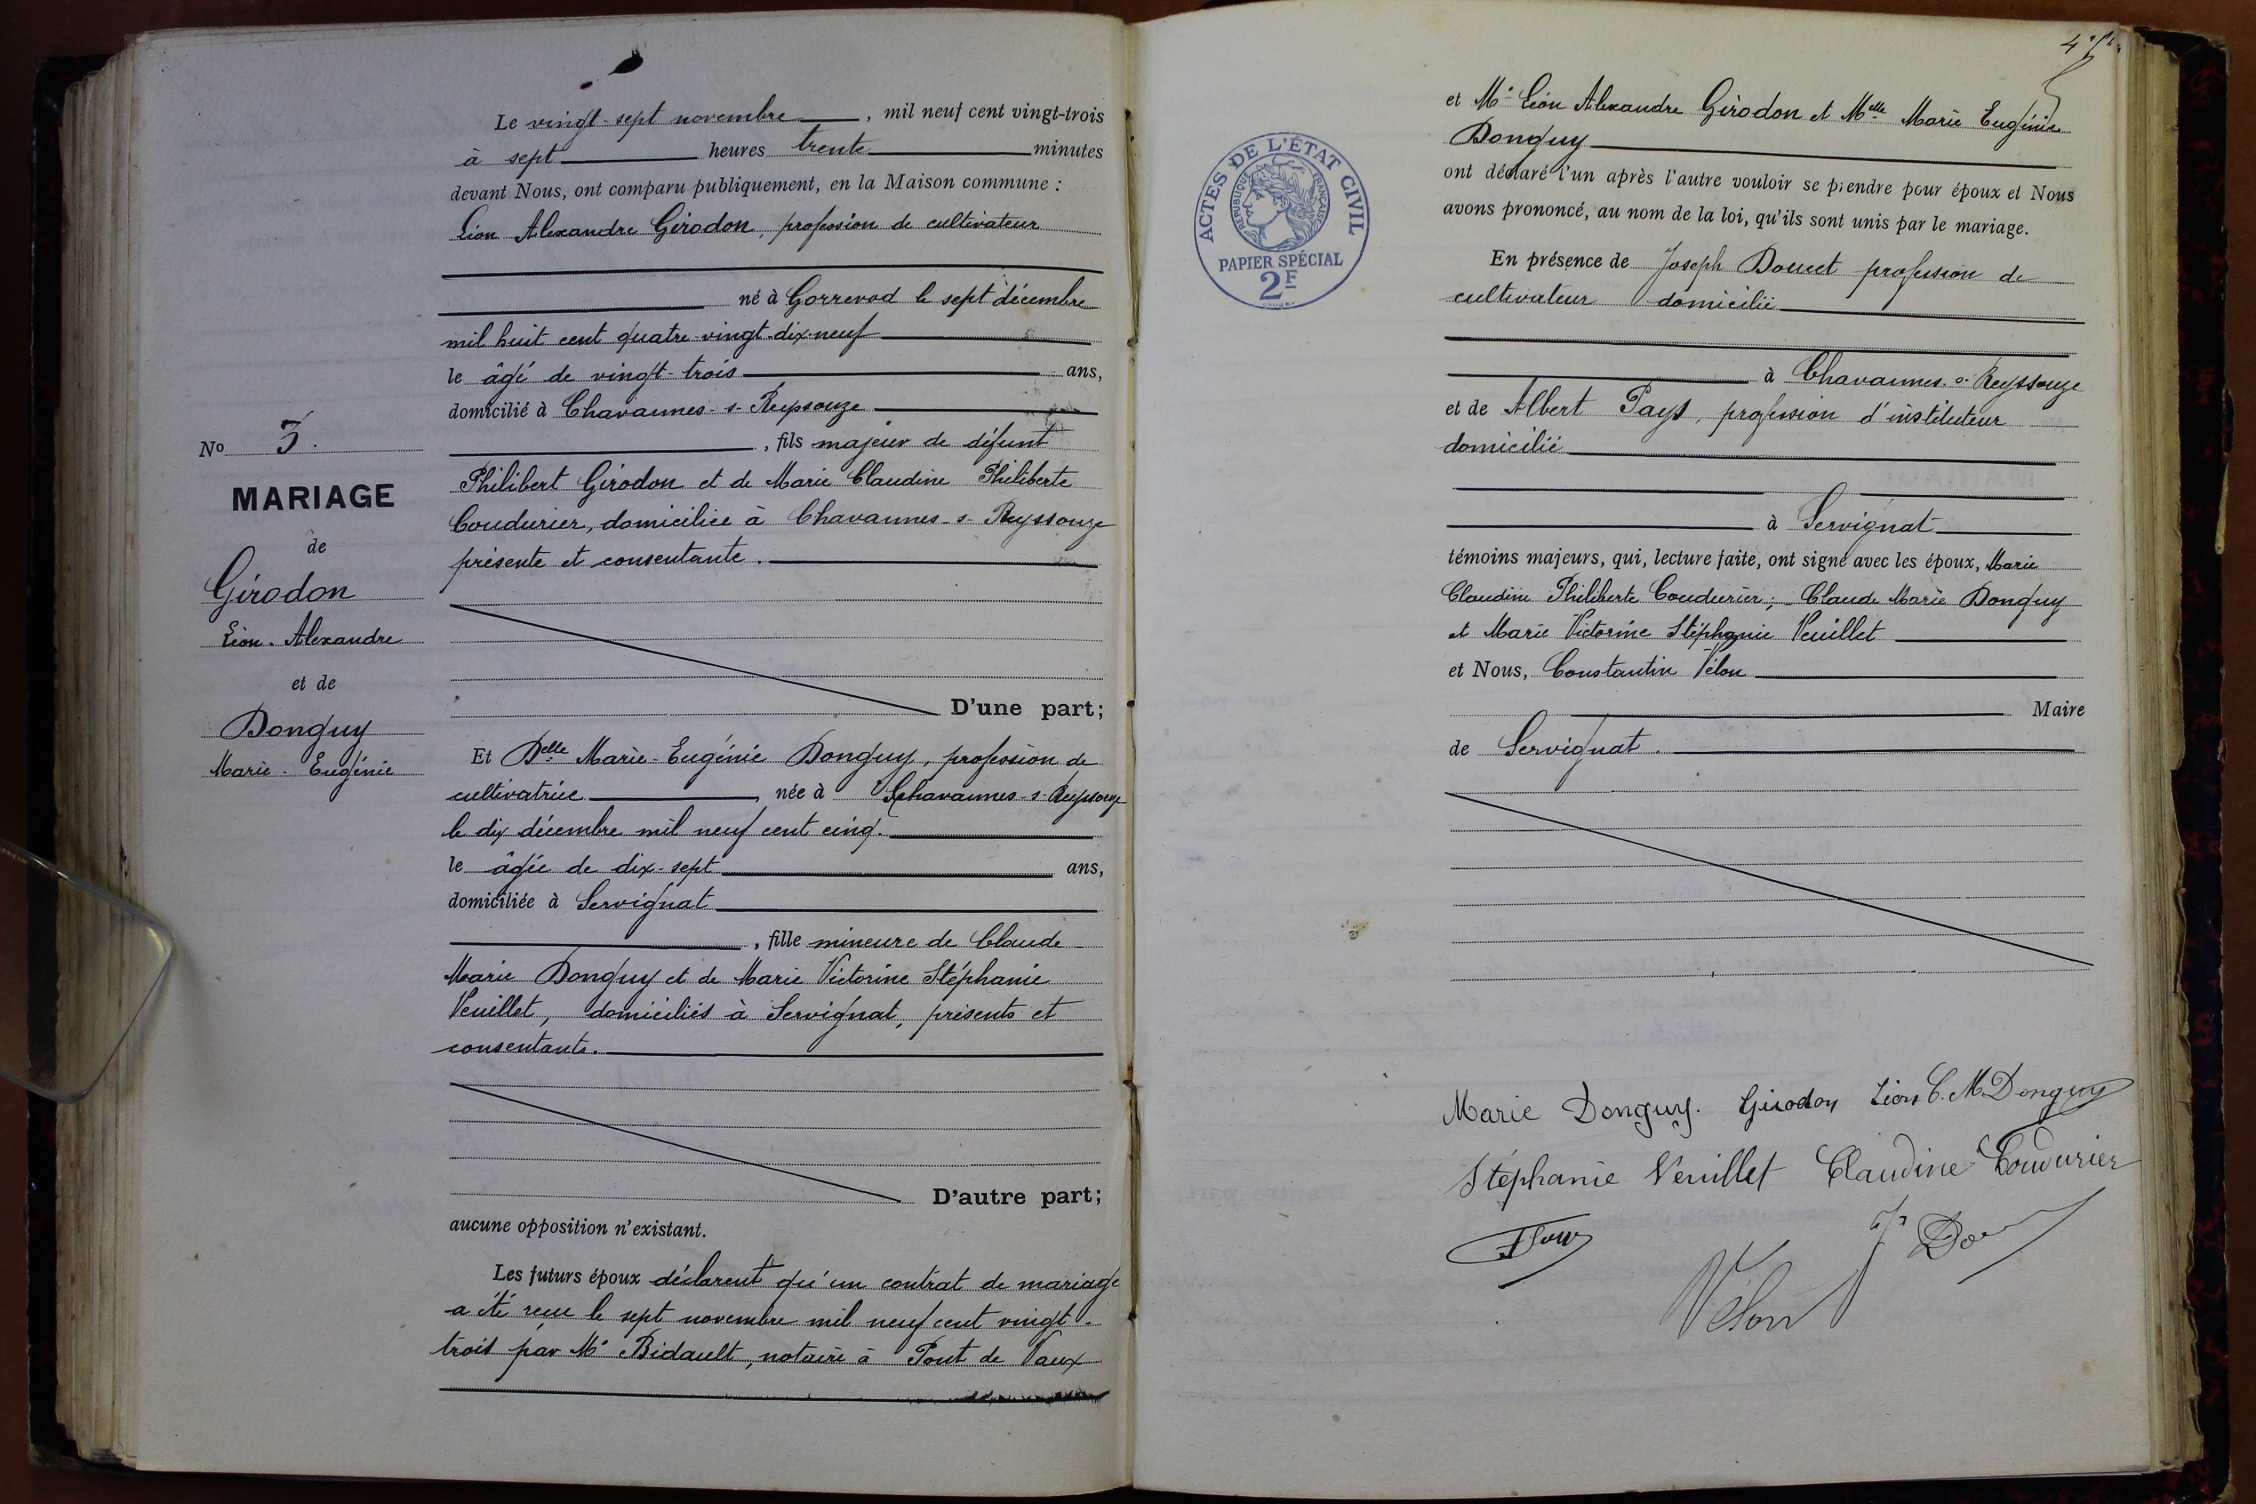 Le vingt-sept novembre, mil neuf cent vingt-trois
à sept heures trente minutes
devant Nous, ont comparu publiquement, en la Maison commune :
Léon Alexandre Girodon, profession de cultivateur
né à Gorrevod le sept décembre
mil huit cent quatre-vingt-dix-neuf
le âgé de vingt-trois ans,
domicilié à Chavannes-s-Reyssouze
, fils majeur de défunt
Philibert Girodon et de Marie Claudine Philiberte
Coudurier, domiciliée à Chavannes-s-Reyssouze
présente et consentante.
D'une part;
Et Delle Marie-Eugénie Donguy, profession de
cultivatrice, née à Chavannes-s-Reyssouze
le dix décembre mil neuf cent cinq.
le âgée de dix-sept ans,
domiciliée à Servignat
, fille mineure de Claude
Marie Donguy et de Marie Victorine Stéphanie
Veuillet, domiciliés à Servignat, présents et
consentants.
D'autre part;
aucune opposition n'existant.
Les futurs époux déclarent qu'un contrat de mariage
a été reçu le sept novembre mil neuf cent vingt-
trois par Me Bidault, notaire à Pont de Vaux
No 3.
MARIAGE
de
Girodon
Léon-Alexandre
et de
Donguy
Marie-Eugénie
et Mr Léon Alexandre Girodon et Melle Marie Eugénie
Donguy
ont déclaré l'un après l'autre vouloir se prendre pour époux et Nous
avons prononcé, au nom de la loi, qu'ils sont unis par le mariage.
En présence de Joseph Doucet profession de
cultivateur domicilié
à Chavannes-s-Reyssouze
et de Albert Pays, profession d'instituteur
domicilié
à Servignat
témoins majeurs, qui, lecture faite, ont signé avec les époux, Marie
Claudine Philiberte Coudurier; Claude Marie Donguy
et Marie Victorine Stéphanie Veuillet
et Nous, Constantin Vélon
Maire
de Servignat.
ACTES DE L'ÉTAT CIVIL
RÉPUBLIQUE FRANÇAISE
PAPIER SPÉCIAL
2F
Marie Donguy. Girodon Léon C. M Donguy
Stéphanie Veuillet Claudine Coudurier
Vélon